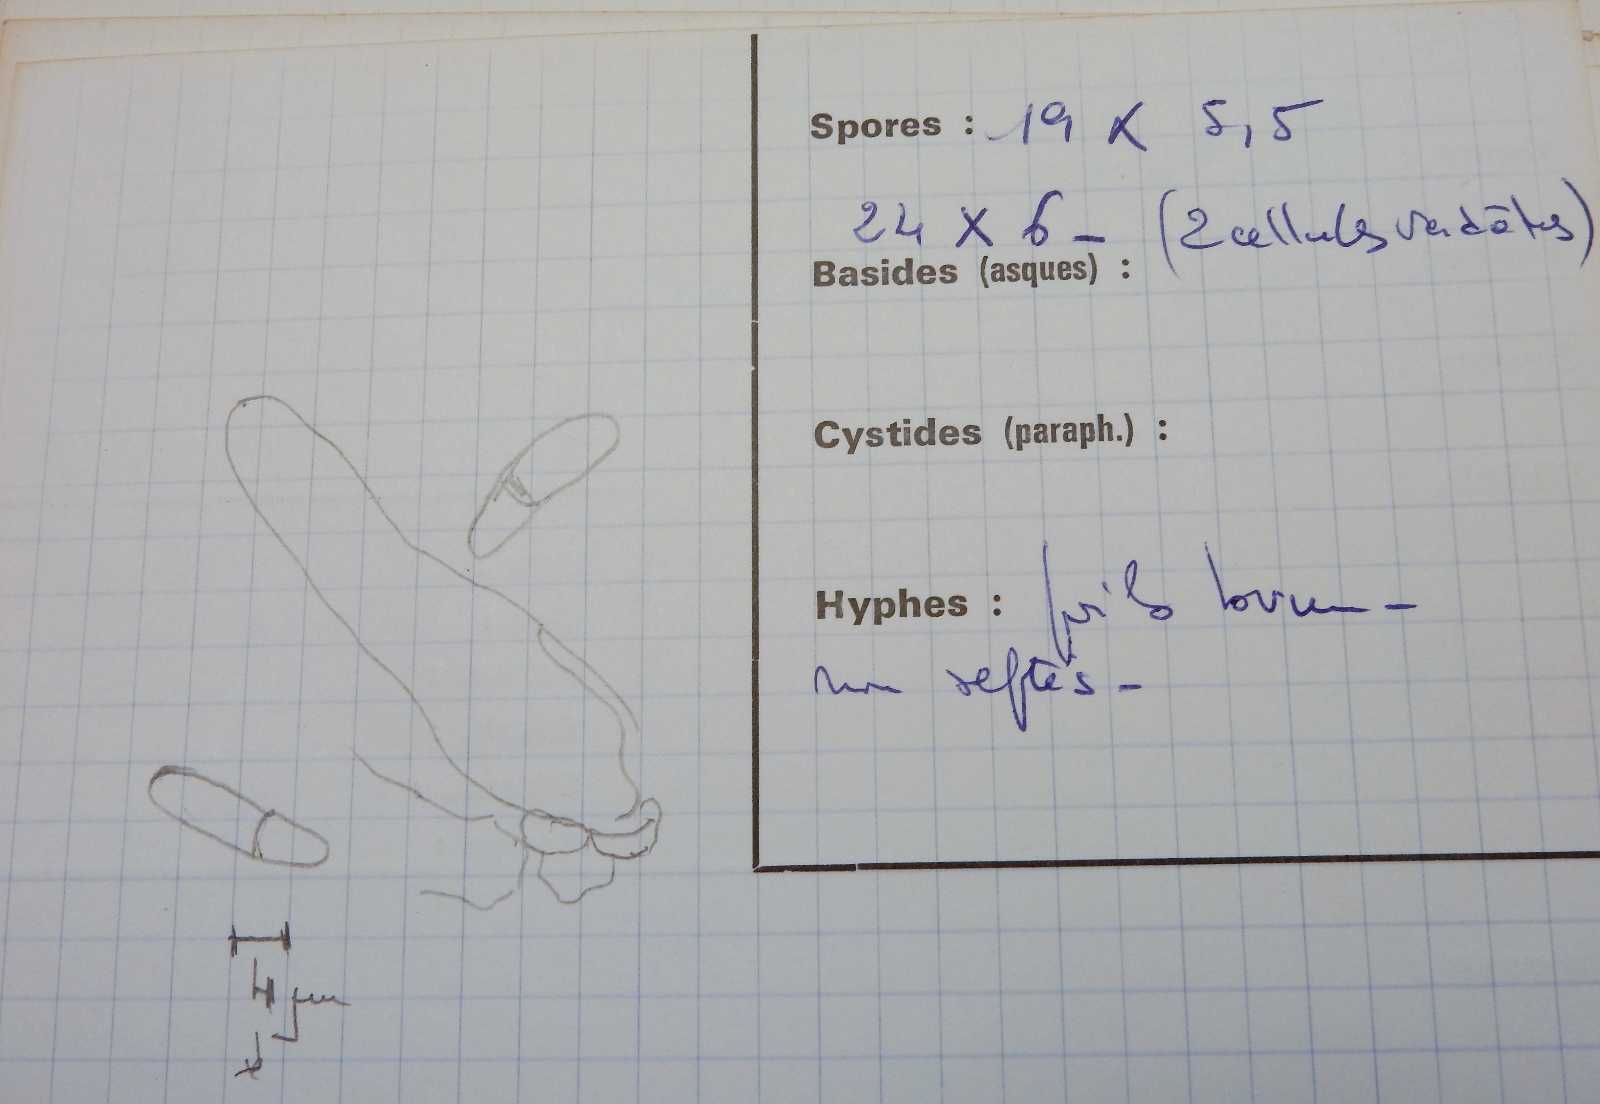 Spores : 19 x 5,5
24 x 6 - (2 cellules verdâtes)
Basides (asques) :
Cystides (paraph.) :
Hyphes : poils bruns -
non septés -